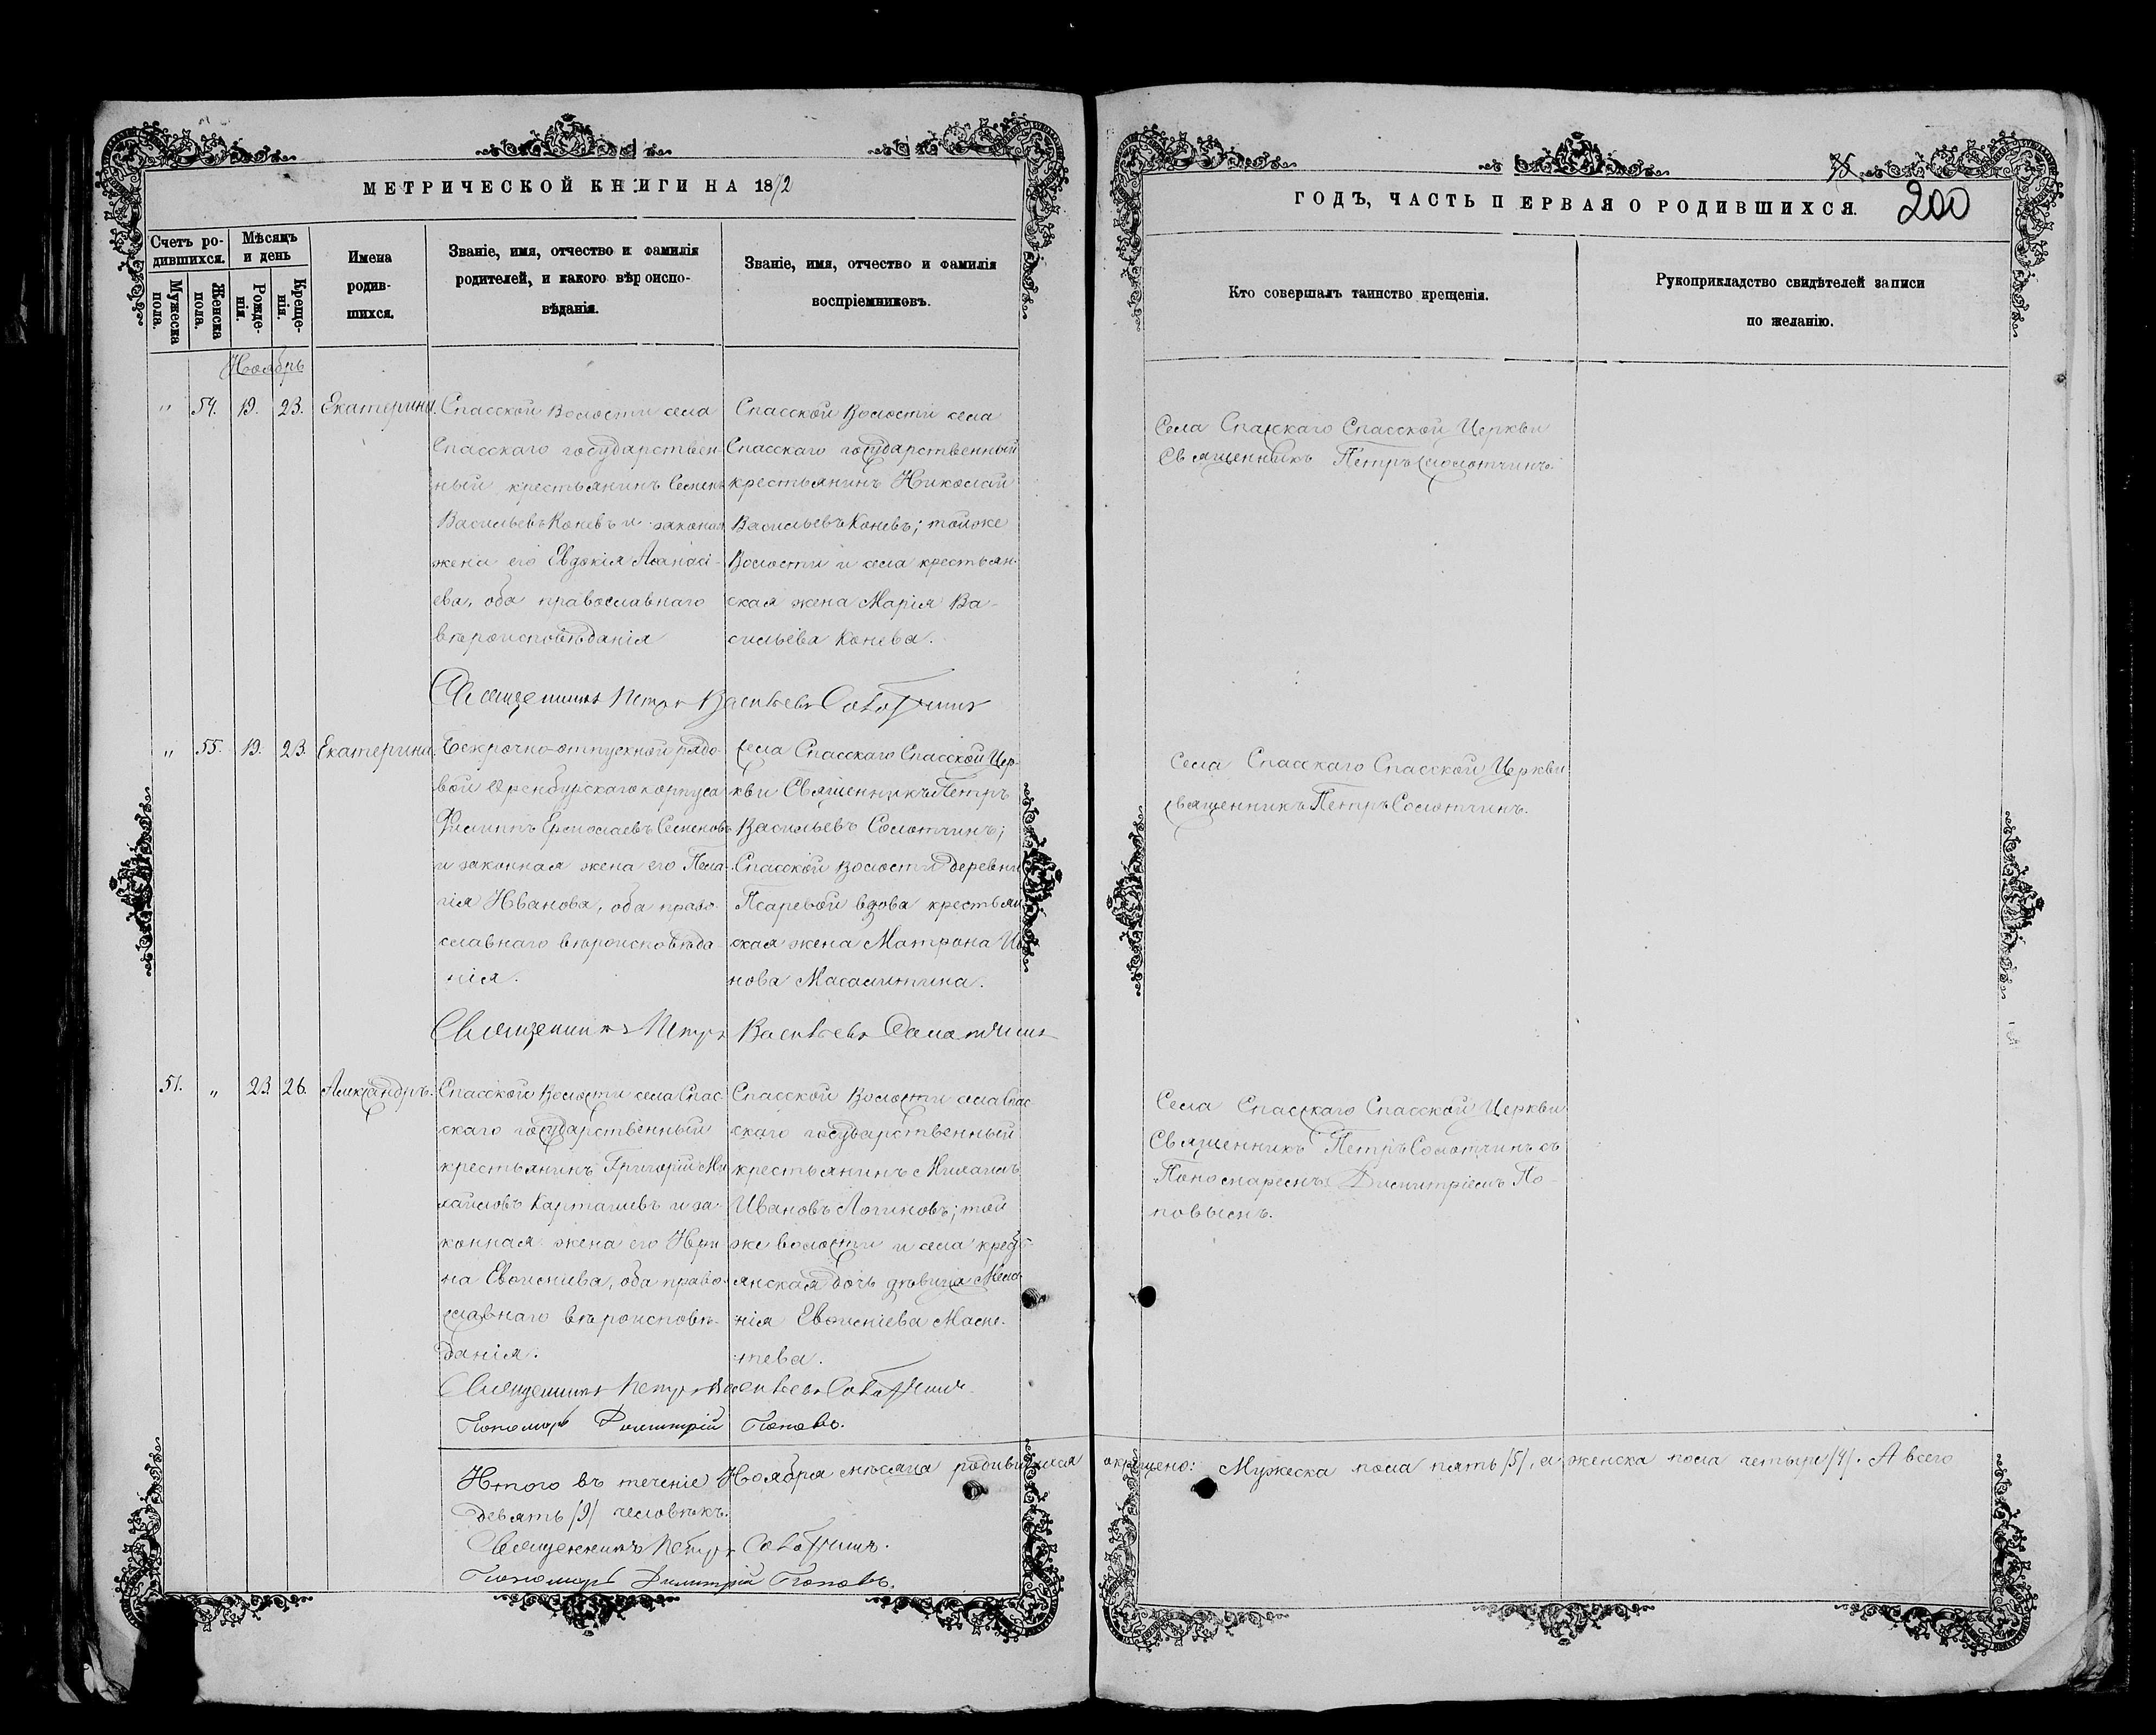 МЕТРИЧЕСКОЙ КНИГИ НА 1872
Счетъ ро-
дившихся.
Мѣсяцъ
и день
Мужеска
пола.
Женска
пола.
Рожде-
нія.
Креще-
нія.
Имена
родив-
шихся.
Званіе, имя, отчество и фамилія
родителей, и какого вѣроиспо-
вѣданія.
Званіе, имя, отчество и фамилія
воспріемниковъ.
Ноябрь
" 54. 19. 23. Екатерина.
Спасской Волости села
Спасскаго государствен-
ный крестьянинъ Семенъ
Васильевъ Коневъ и законая
жена его Евдокія Аѳанасі-
ева, оба православнаго
вѣроисповѣданія
Спасской Волости села
Спасскаго государственный
крестьянинъ Николай
Васильевъ Коневъ; тойже
Волости и села крестьян-
ская жена Марія Ва-
сильева Конева.
Священникъ Петръ Васильевъ Солотчинъ
" 55. 19. 23. Екатерина.
Безсрочно-отпускной рядо-
вой Оренбургскаго корпуса
Филиппъ Ермолаевъ Семеновъ
и законная жена его Пела-
гія Иванова, оба право-
славнаго вѣроисповѣда-
нія.
Села Спасскаго Спасской Цер-
кви Священникъ Петръ
Васильевъ Солотчинъ;
Спасской Волости деревни
Псаревой вдова крестьян
ская жена Матрона Ива
нова
Священникъ Петръ Васильевъ Солотчинъ
51. " 23 26. Александръ.
Спасской Волости села Спас-
скаго государственный
крестьянинъ Григорій Ми
хайловъ Карташевъ и за-
конная жена его Ири-
на Евѳиміева, оба право-
славнаго вѣроисповѣ-
данія.
Спасской Волости села Спас
скаго государственный
крестьянинъ Михаилъ
Ивановъ Логиновъ; той
же волости и села кресть-
янская дочь дѣвица Мела-
нія Евѳиміева
Священникъ Петръ Васильевъ Солотчинъ
Пономарь Димитрій Поповъ.
Итого въ теченіе Ноября мѣсяца родившихся
девять /9/ человѣкъ.
Священникъ Петръ Солотчинъ.
Пономарь Димитрій Поповъ.
75
200
ГОДЪ, ЧАСТЬ ПЕРВАЯ О РОДИВШИХСЯ.
Кто совершалъ таинство крещенія.
Рукоприкладство свидѣтелей записи
по желанію.
Села Спасскаго Спасской Церкви
Священникъ Петръ Солотчинъ.
Села Спасскаго Спасской Церкви
священникъ Петръ Солотчинъ.
Села Спасскаго Спасской Церкви
Священникъ Петръ Солотчинъ съ
Пономаремъ Димитріемъ По-
повымъ.
окрещено: Мужеска пола пять /5/, а женска пола четыре /4/. А всего